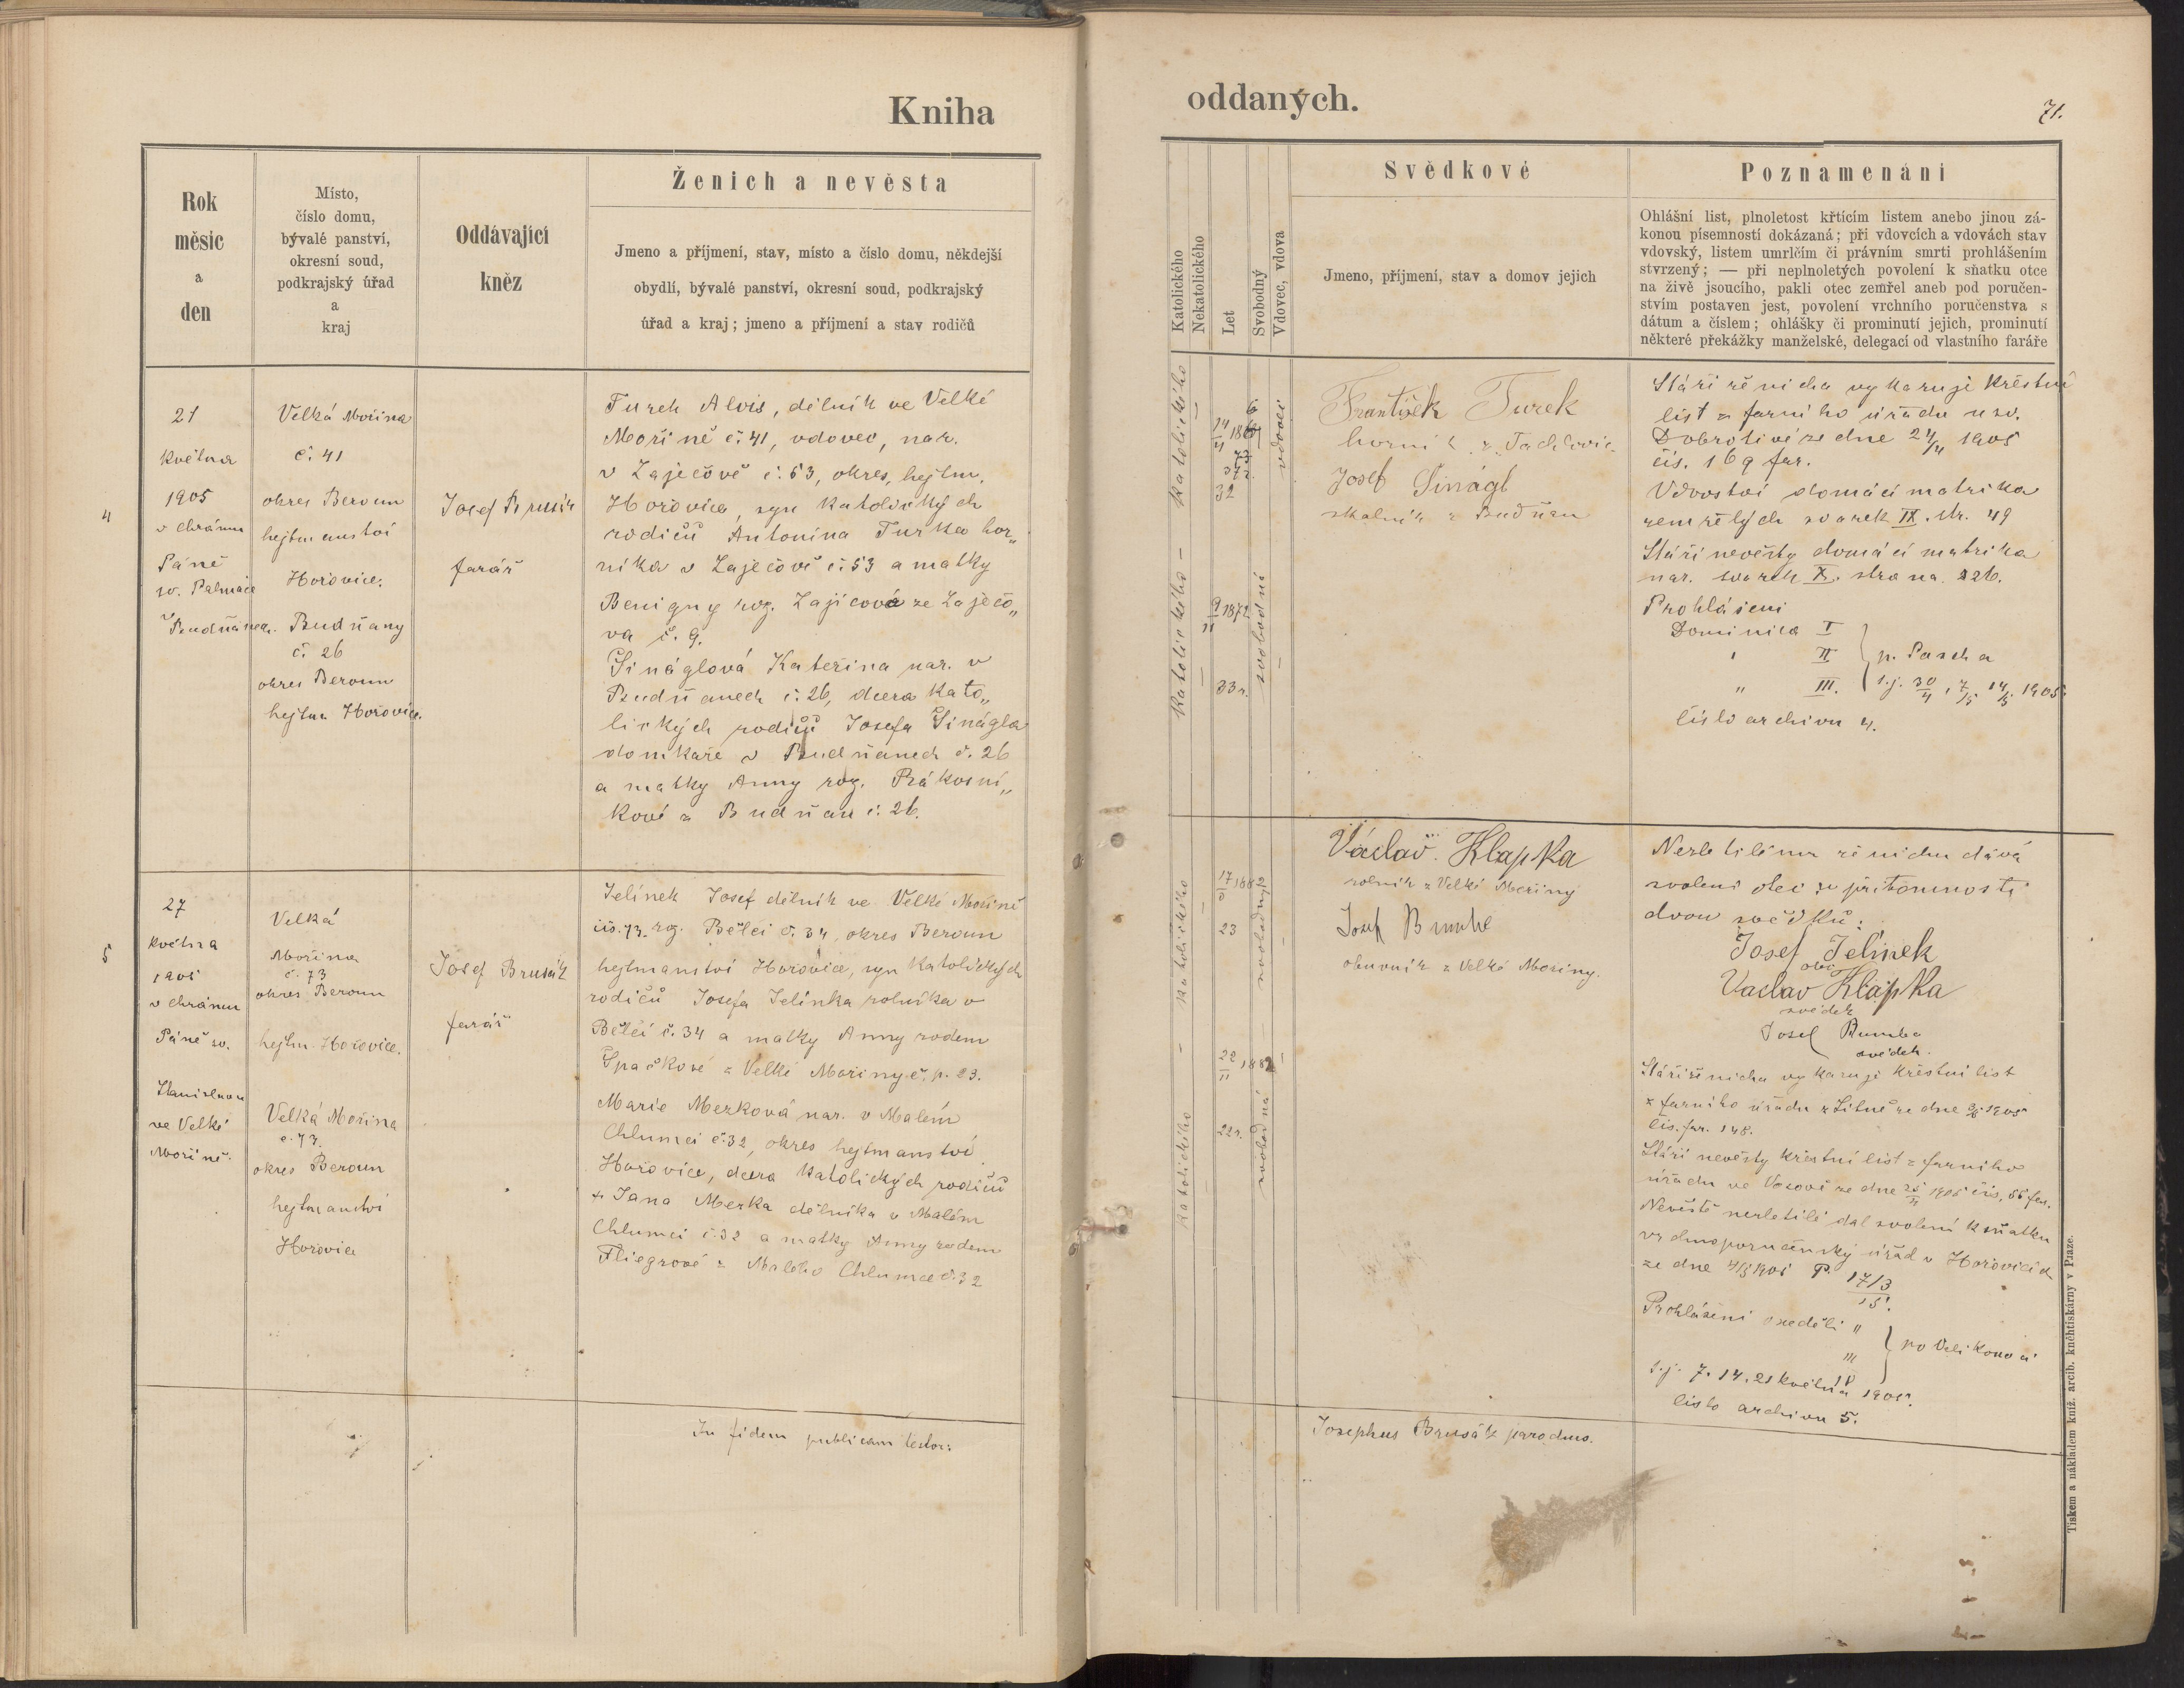 Kniha
oddaných.
71.
Rok
měsíc
a
den
Místo,
číslo domu,
bývalé panství,
okresní soud,
podkrajský úřad
a
kraj
Oddávající
kněz
Ženich a nevěsta
Jmeno a příjmení, stav, místo a číslo domu, někdejší
obydlí, bývalé panství, okresní soud, podkrajský
úřad a kraj; jmeno a příjmení a stav rodičů
Katolického
Nekatolického
Let
Svobodný
Vdovec, vdova
Svědkové
Jmeno, příjmení, stav a domov jejich
Poznamenání
Ohlášní list, plnoletost křtícím listem anebo jinou zá-
konou písemností dokázaná; při vdovcích a vdovách stav
vdovský, listem umrlčím či právním smrti prohlášením
stvrzený; — při neplnoletých povolení k sňatku otce
na živě jsoucího, pakli otec zemřel aneb pod poručen-
stvím postaven jest, povolení vrchního poručenstva s
dátum a číslem; ohlášky či prominutí jejich, prominutí
některé překážky manželské, delegací od vlastního faráře
4
21
května
1905
v chrámu
Páně
sv. Palmacia
v Budňanech.
Velká Mořina
č. 41
okres Beroun
hejtmanství
Hořovice.
Budňany
č. 26
okres Beroun
hejtm. Hořovice.
Josef Brusák
farář
Turek Alois, dělník ve Velké
Mořině č. 41, vdovec, nar.
v Zaječově č. 53, okres, hejtm.
Hořovice, syn katolických
rodičů Antonína Turka hor„
níka v Zaječově č. 53 a matky
Benigny roz. Zajícová ze Zaječo„
va č. 9.
Šináglová Kateřina nar. v
Budňanech č. 26, dcera kato„
lických rodičů Josefa Šinágla
domkaře v Budňanech č. 26
a matky Anny roz. Rákosní„
kové z Budňan č. 26.
katolického – katolického
14/4 186
37 r.
32
vdovec
9/11 1872
33 r.
svobodná
František Turek
horník z Tachlovic
Josef Šinágl
skalník z Budňan
Stáří ženicha vykazuje křestní
list z farního úřadu u sv.
Dobrotivé ze dne 24/4 1905
čís. 169 far.
Vdovství domácí matrika
zemřelých svazek IX. str. 49
Stáří nevěsty domácí matrika
nar. svazek X. strana 226.
Prohlášení
Dominica I
" II p. Pascha
" III. t.j. 30/4, 7/5, 14/5. 1905.
Číslo archivu 4.
5
27
května
1905
v chrámu
Páně sv.
Stanislava
ve Velké
Mořině.
Velká
Mořina
č. 73
okres Beroun
hejtm. Hořovice.
Velká Mořina
č. 73.
okres Beroun
hejtmanství
Hořovice
Josef Brusák
farář
Jelínek Josef dělník ve Velké Mořině
čís. 73. roz. Bělči č. 34, okres Beroun
hejtmanství Hořovice, syn katolických
rodičů Josefa Jelínka rolníka v
Bělči č. 34 a matky Anny rodem
Špačkové z Velké Mořiny č. p. 23.
Marie Merková nar. v Malém
Chlumci č. 32, okres hejtmanství
Hořovice, dcera katolických rodičů
† Jana Merka dělníka v Malém
Chlumci č. 32 a matky Anny rodem
Fliegrové z Malého Chlumce č. 32
katolického – katolického
23
svobodný –
22/11 1882
22 r.
svobodná
Václav Klapka
rolník z Velké Mořiny
Josef Bumba
obuvník z Velké Mořiny.
Nezletilému ženichu dává
svolení otec za přítomnosti
dvou svědků:
Josef Jelínek
otec
Vaclav Klapka
svědek
Josef Bumba
svědek.
Stáří ženicha vykazuje křestní list
z farního úřadu z Litně ze dne 1905
čís. far. 148.
Stáří nevěsty křestní list z farního
úřadu ve Vosově ze dne 25/4 1905 čís. 56 far.
Nevěstě nezletilé dal svolení k sňatku
vrchnoporučenský úřad v Hořovicích
ze dne 4/5 1905 P. 17/3
15.
Prohlášení neděli II
III po Velikonoci
IV
t.j. 7. 14. 21 května 1905.
číslo archivu 5.
In fidem publicam testor:
Josephus Brusák parochus.
Tiskem a nákladem kníž. arcib. kněhtiskárny v Praze.